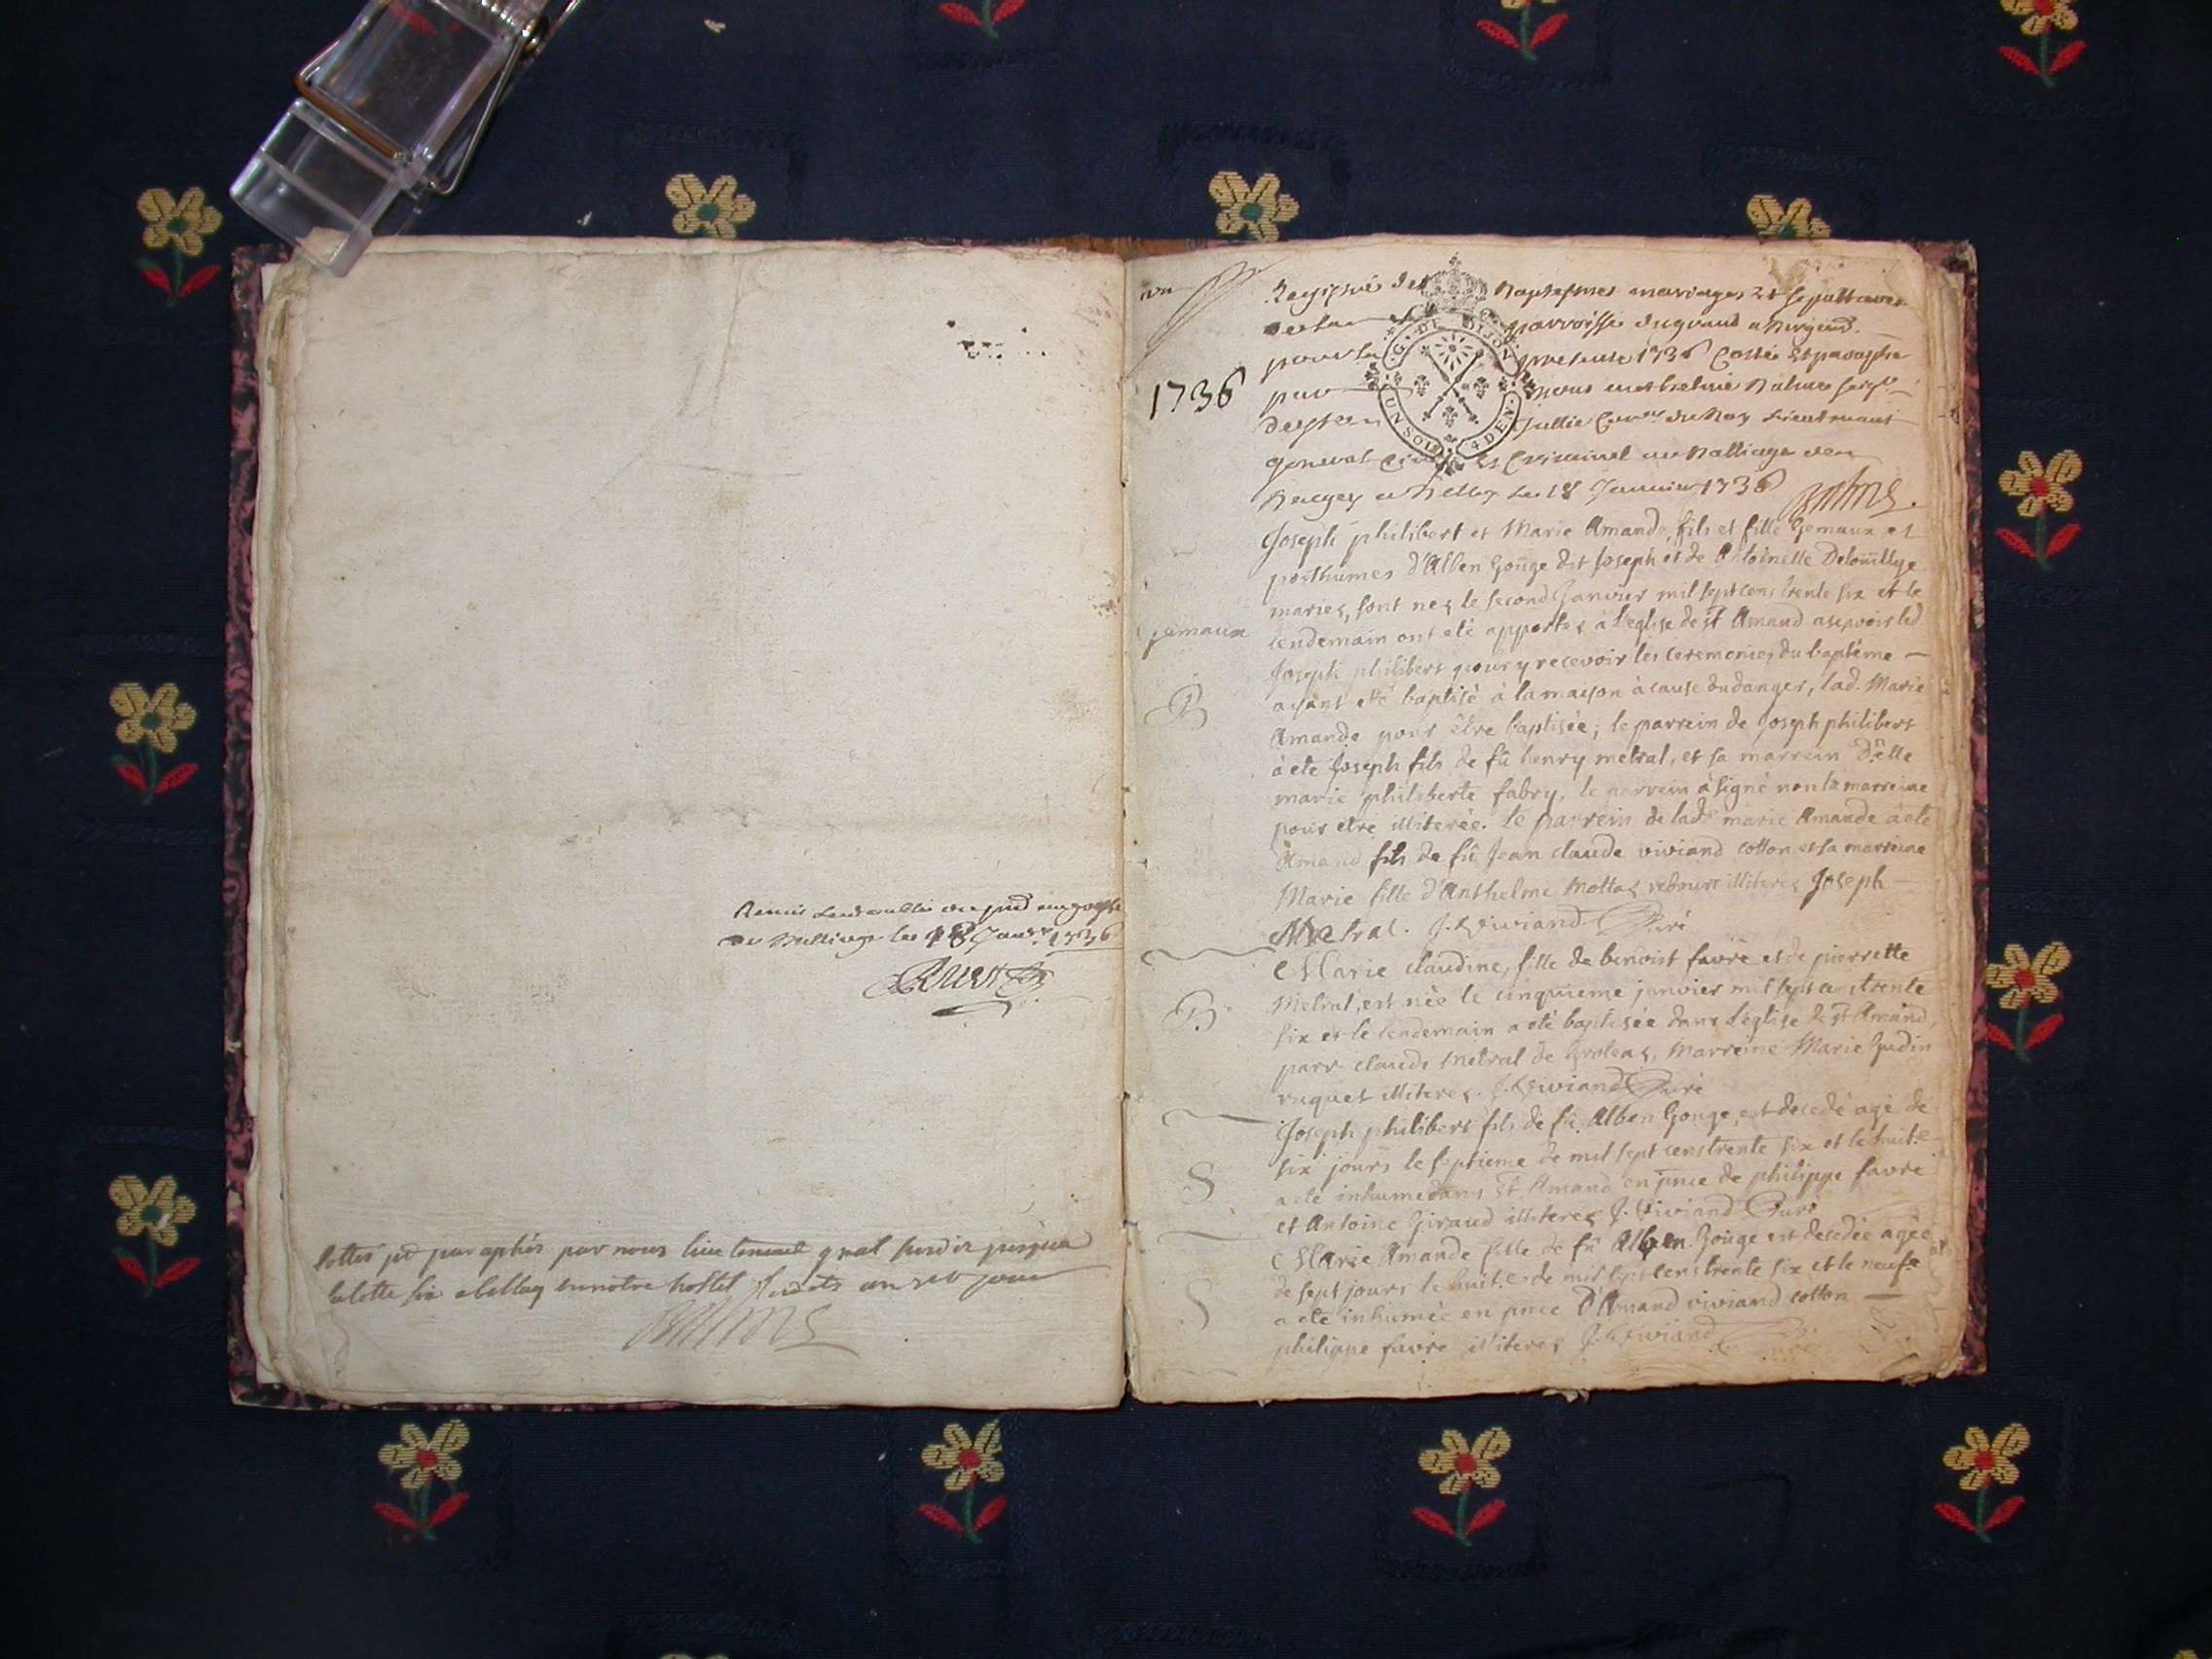 Remis
de Balliage le 18 Janv. 1736
cottés et paraphés par nous lieutenant gnal susdit jusqua
la cotte six a belley en notre hostel
un
Registre des Baptesmes mariages et sepultures
de la parroisse du grand abergieud
pour la presente 1736 Cottée et paraphé
par nous
1736
G. DE DIJON
UN SOL 4 DEN.
du Roy Lieutenant
general civil et Criminel au Balliage de
Bugey a Belley Le 18 Janvier 1736
Joseph philibert et Marie Amande, fils et fille Gemaux et
posthumes d'Alben Gouge dit Joseph et de Antoinette Delouillye
mariez, sont nez le second Janvier mil sept cens trente six et le
lendemain ont eté apportez à l'eglise de st Amand ascavoir led
gemaux
Joseph philibert pour y recevoir les ceremonies du baptême
ayant eté baptisé à la maison à cause du danger, lad. Marie
B
Amande pour être baptisée; le parrein de Joseph philibert
à eté Joseph fils de fû henry metral, et sa marrein d'elle
marie philiberte fabry, le parrein à signé non la marreine
pour etre illiterée. Le parrein de lade marie Amande à eté
Amand fils de fû Jean claude viviand cotton et sa marreine
Marie fille d'Anthelme Mottaz illiterez Joseph
Metral. J. Viviand Curé
Marie claudine, fille de benoist favre et de pierrette
Metral, est née le cinquieme janvier mil sept cens trente
B
six et le lendemain a eté baptisée dans l'église de st Amand,
parr. claude metral de Marreine Marie
ruquet illiterez. J. Viviand Curé
Joseph philibert fils de fû Alben Gouge, est decedé agé de
six jours le septieme de mil sept cens trente six et le huit.e
S
a eté inhumé dans st Amand en pnce de philippe favre
et Antoine Giraud illiterez J. Viviand Curé
Marie Amande fille de fû Alben Gouge est decedée agée
de sept jours le huit.e de mil sept cens trente six et le neuf.e
S
a eté inhumée en pnce D'Amand viviand cotton
philippe favre illiterez J. Viviand Curé